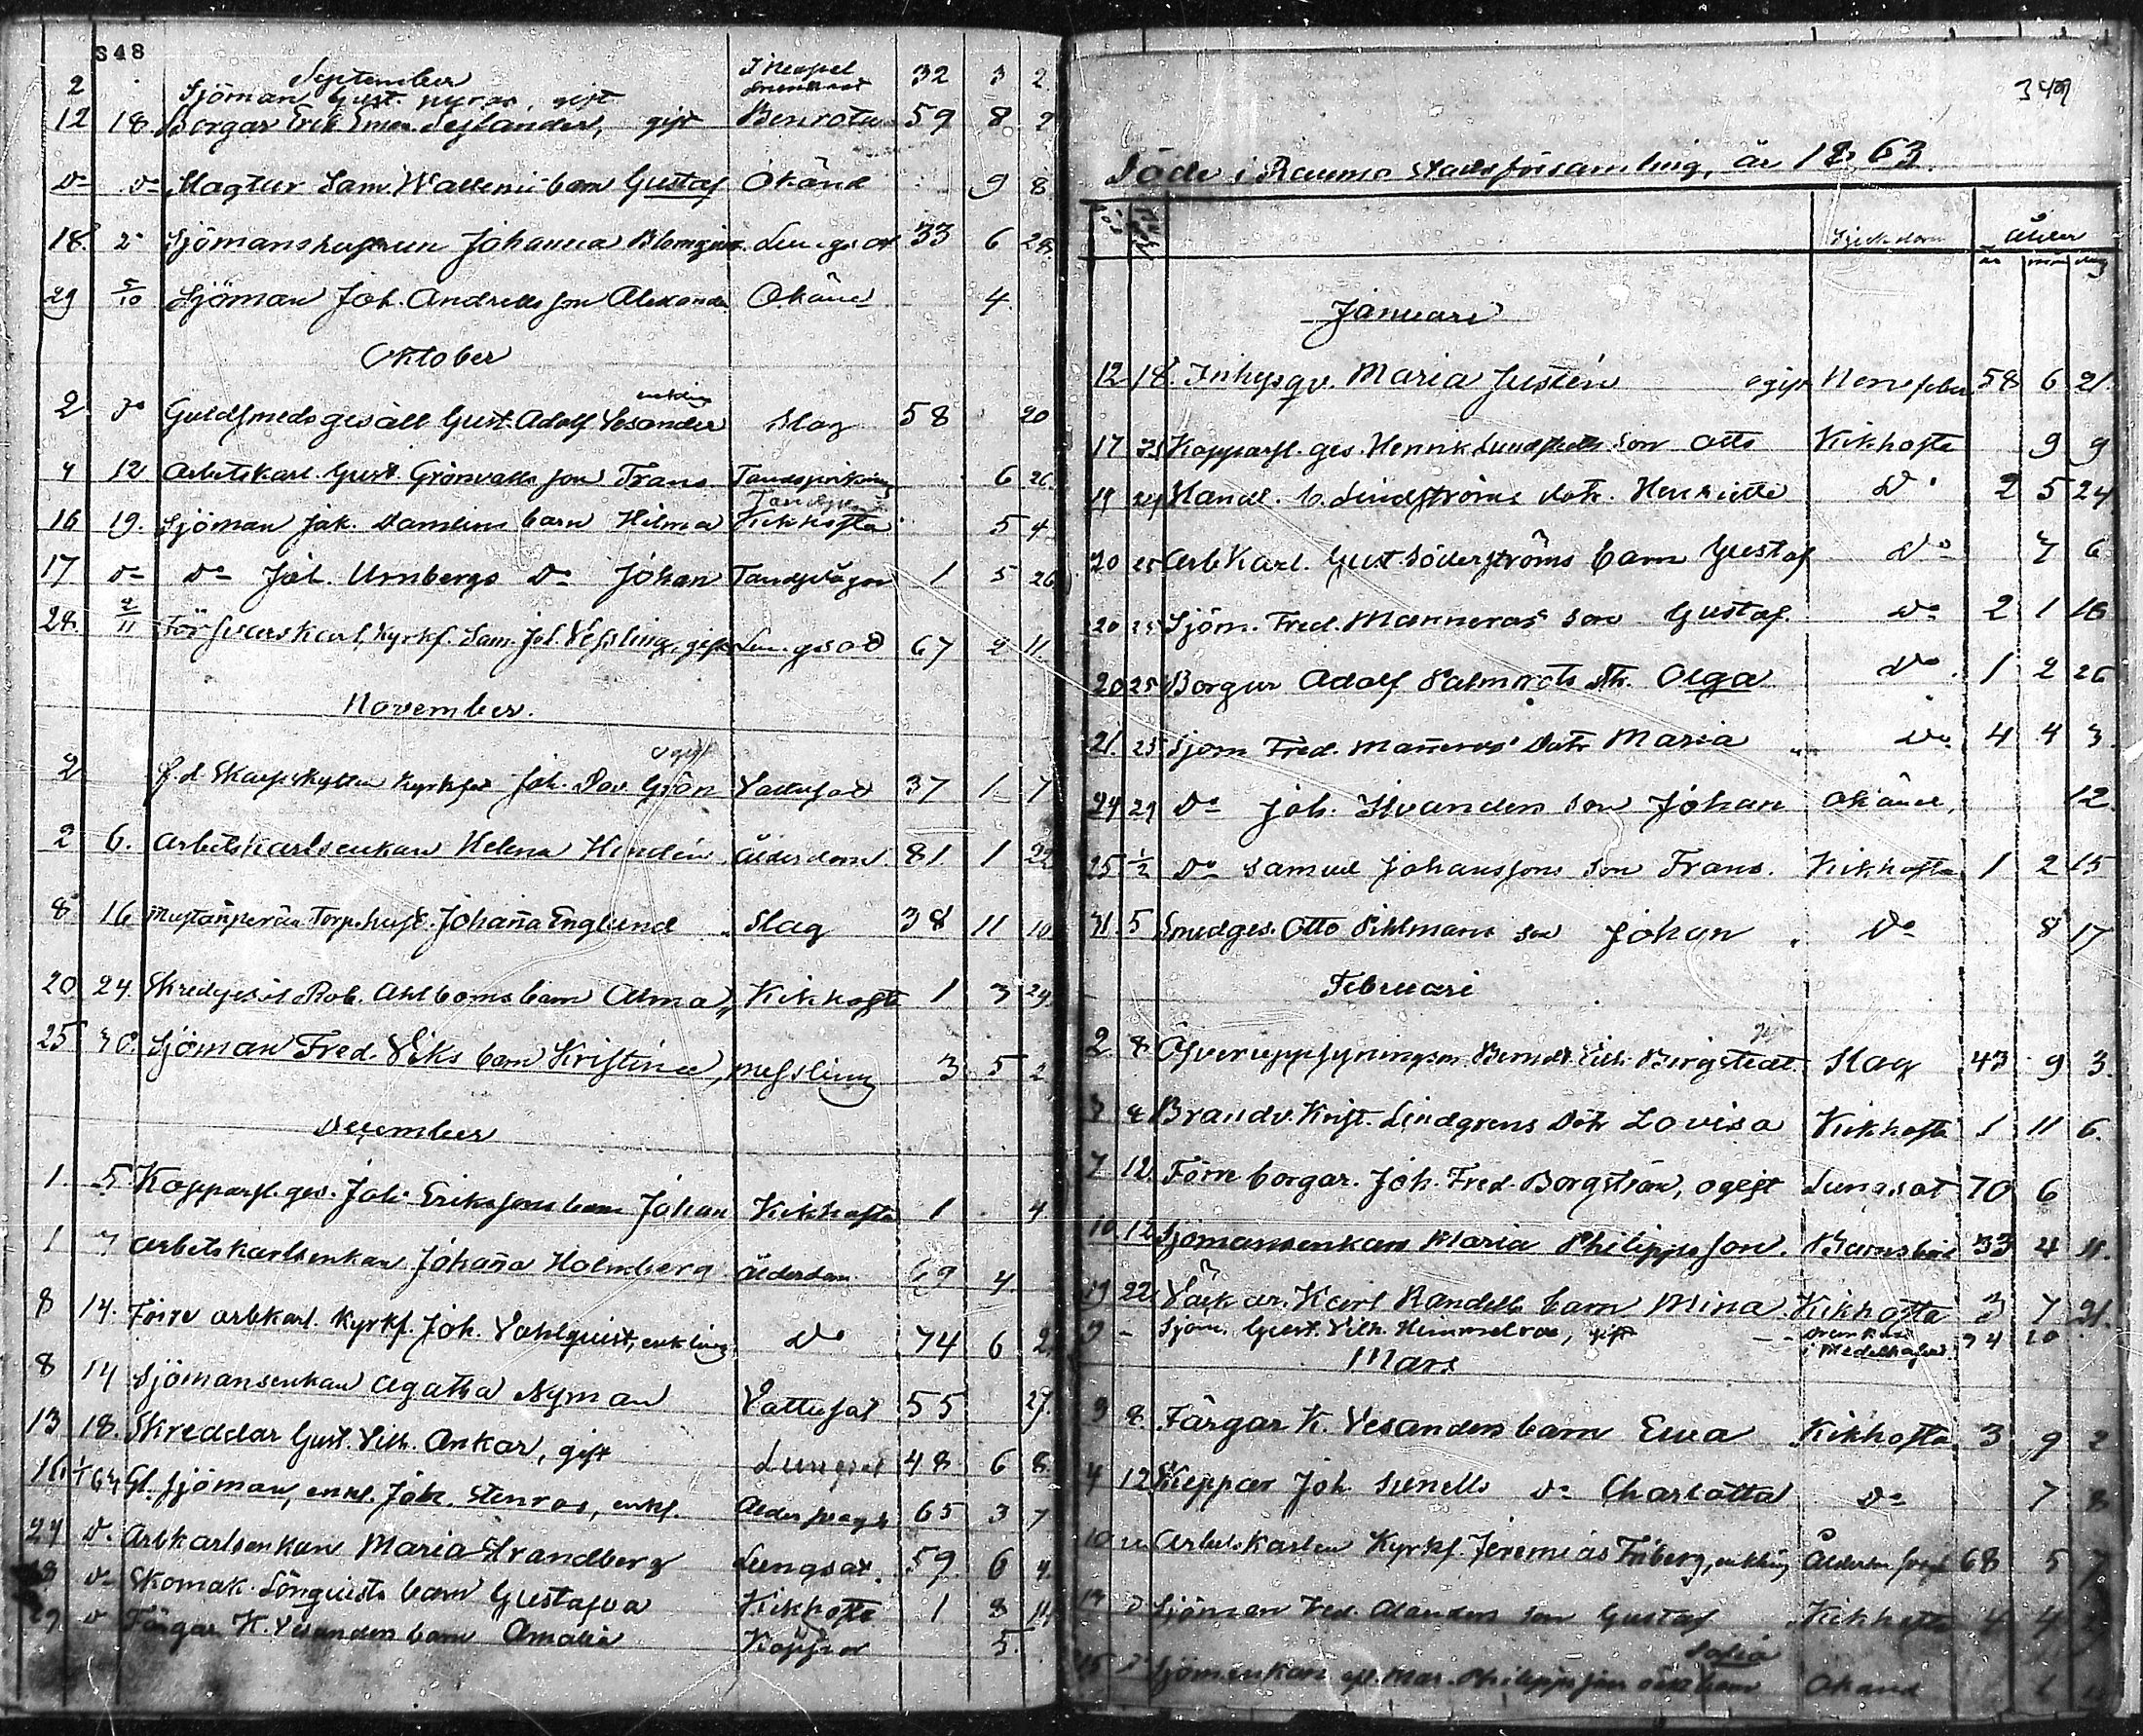 348
September
2 Sjöman Gust. gift I Neapel 32 3 2
12 18. Borgar Erik Eman. Sejlander, gift Benröta 59 8 2
Do Do Slagtar Sam. Wallenii barn Gustaf Okänd 9 8
18. Do Sjömanshustrun Johanna Blomgren Lungsot 33 6 28
29 5/10 Sjöman Joh. Andersson Alexander Okänd 4.
Oktober
enkling
2 Do Guldsmedsgesäll Gust. Adolf Vesander Slag 58 20
4 12 Arbetskarl. Gust. Grönvalls son Frans Tandsprickning 6 26.
16 19. Sjöman Jak. Damlins barn Hilma Kikhosta 5 4.
17 Do Do Joh. Urnbergs Do Johan 1 5 26
28. 2/11 Försvarskarl, Kyrkf. Sam. Joh. Vessling, gift Lungsot 67 2 11.
November.
ogift
2 f.d. Skarpskytten Kyrkfat. Joh. Dav. Grön Vattusot 37 1 7
2 6. Arbetskarlsenkan Helena Hendén ålderdom 81. 1 22
8 16 Torp.hust. Johanna Englund Slag 38 11 10
20 24. Skredges. Rob. Ahlboms barn Alma Kikhosta 1 3 29.
25 30. Sjöman Fred. Viks barn Kristina, messling 3 5 2
December
1. 5. Kopparsl. ges. Joh. Erikssons barn Johan Kikhosta 1 4
1 7 Arbetskarlsenkan Johanna Holmberg ålderdom 69 4.
8 14. Förre arbkarl. Kyrkf. Joh. Vahlquist, enkling Do 74 6 2
8 14 Sjömansenkan Agatha Nyman Vattusot 55 27.
13 18. Skreddar Gust. Vilh. Ankar, gift Lungsot 48 6 8.
16. Gl. sjöman, enkl. Joh. Stenros, enkl. 65 3 7
24 Do Arbkarlsenkan Maria Strandberg Lungsot. 59. 6 4
28 Do Skomak. Lönquists barn Gustafva Kikhosta 1 8 11
29. Do Färgar K. Vesanders barn Amalia Koppor 5.
349
Döde i Raumo Stadsförsamling, år 1863.
Sjukdom Ålder
år mån dag
Januari
12 18. Inhysqv. Maria Justén ogift Nervfeber 58 6 21.
17 25 Kopparsl. ges. Henrik Lundstedts son Otto Kikhosta 9 9
19 24 Handl. C. Lindströms dotr. Henriette Do 2 5 24
20 25 Arbkarl. Gust. Söderströms barn Gustaf Do 7 6
20 25 Sjöm. Fred. Manneros son Gustaf. Do 2 1 16
20 25 Borgar Adolf Palmroths dtr. Olga Do. 1 2 26
21. 25 Sjöm Fred. Manneros' Dotr Maria Do 4 4 3.
24 29 Do Joh. Ilvanders son Johan okänd, 12.
25 1/2 Do Samuel Johanssons son Frans. Kikhosta 1 2 15
31. 5 Smedges. Otto Pihlmans son Johan Do 8 17
Februari
gift
2 8 Öfveruppsyningsm. Berndt Vilh. Bergstedt. Slag 43 9 3.
3 8 Brandv. Krist. Lindgrens Dotr Lovisa Kikhosta 1 11 6.
7 12. Förre borgar. Joh. Fred. Borgström, ogift Lungsot 70 6
10. 12 Sjömansenkan Maria Philippsson. Barnsbörd 33 4 11.
19 22. Karl Randells barn Mina. Kikhosta 3 7 21.
9 - Sjöm. Gust. Vilh. Himmelroos, gift drunknad i Medelhafvet 24 10
Mars
3 8 Färgar K. Vesanders barn Ewa Kikhosta 3 9 2
4 12 Skeppar Joh Sunells Do Charlotta Do 7 8
10 Arbetskarlen Kyrkf. Jeremias Friberg, enkling 68 5 7
Sjöman Fred. Alanders son Gustaf Kikhosta 4 4
Sofia
15 Sjömenkan Mar. Philippsson barn Okänd